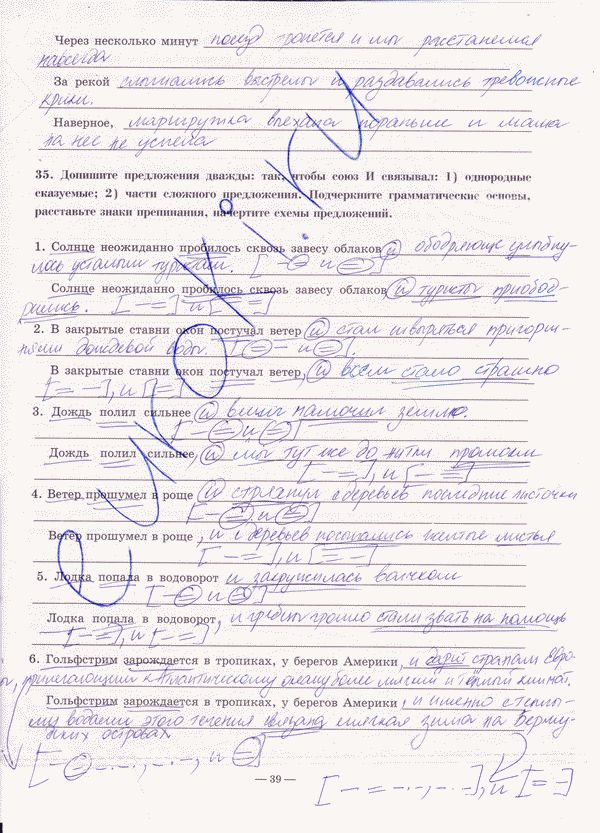 Через несколько минут поезд тронется и мы расстанемся
навсегда
За рекой слышались выстрелы и раздавались тревожные
крики.
Наверное, маршрутка въехала пораньше и мама
на нее не успела
35. Допишите предложения дважды: так, чтобы союз И связывал: 1) однородные
сказуемые; 2) части сложного предложения. Подчеркните грамматические основы,
расставьте знаки препинания, начертите схемы предложений.
1. Солнце неожиданно пробилось сквозь завесу облаков и ободряюще улыбну-
лось усталым туристам. [– = и =]
Солнце неожиданно пробилось сквозь завесу облаков и туристы приобод-
рились. [– =] и [– =]
2. В закрытые ставни окон постучал ветер и стал швыряться пригорш-
нями дождевой воды. [= – и =].
В закрытые ставни окон постучал ветер, и всем стало страшно
[= –], и [=]
3. Дождь полил сильнее и вмиг намочил землю.
[– = и =]
Дождь полил сильнее, и мы тут же до нитки промокли
[– =], и [– =]
4. Ветер прошумел в роще и стряхнул с деревьев последние листочки
[– = и =]
Ветер прошумел в роще, и с деревьев посыпались желтые листья
[– =], и [= –]
5. Лодка попала в водоворот и закружилась волчком
[– = и =]
Лодка попала в водоворот, и гребцы громко стали звать на помощь
[– =], и [– =]
6. Гольфстрим зарождается в тропиках, у берегов Америки, и дарит странам Евро-
пы, прилегающим к Атлантическому океану более мягкий и тёплый климат.
Гольфстрим зарождается в тропиках, у берегов Америки, и именно с теплы-
ми водами этого течения связана мягкая зима на Берму-
дских островах
[– = –.–., –.–., и =]
— 39 —
[– = –.–., –.–.], и [= –]